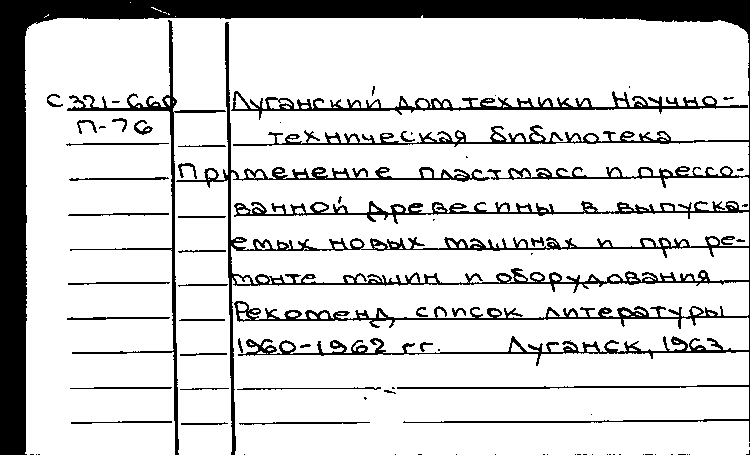 С321-660 Луганский дом техники Научно-
П-76 техническая библиотека
Применение пластмасс и прессо-
ванной древесины в выпуска-
емых новых машинах и при ре-
монте машин и оборудования
Рекоменд. список литературы
1960-1962 гг. Луганск, 1963.